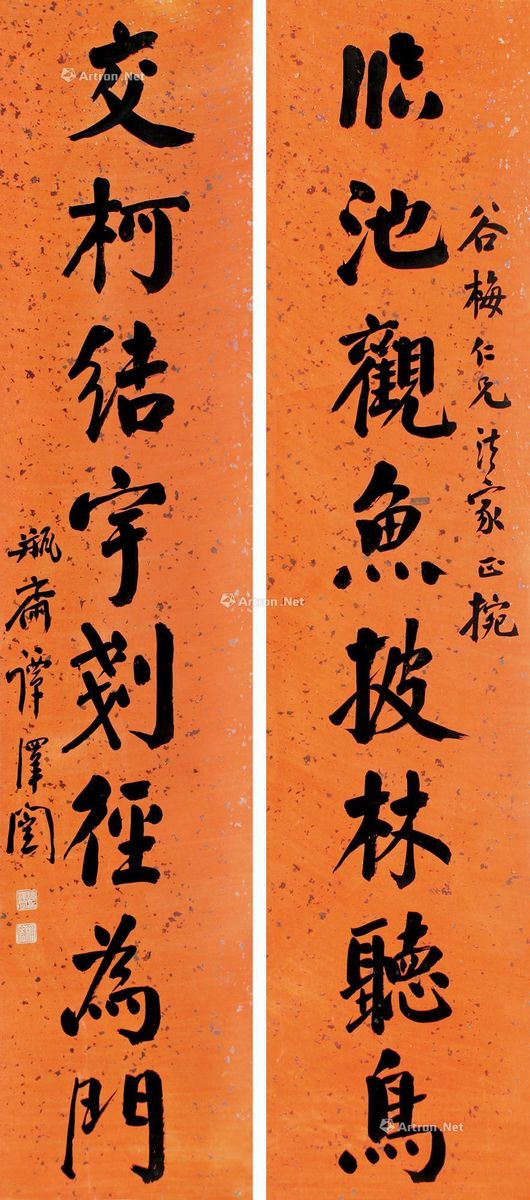 谷梅仁兄法家正捥
臨池觀魚披林聽鳥
交柯結宇剗徑為門
瓶齋譚澤闓
Artron.Net
Artron.Net
Artron.Net
Artron.Net